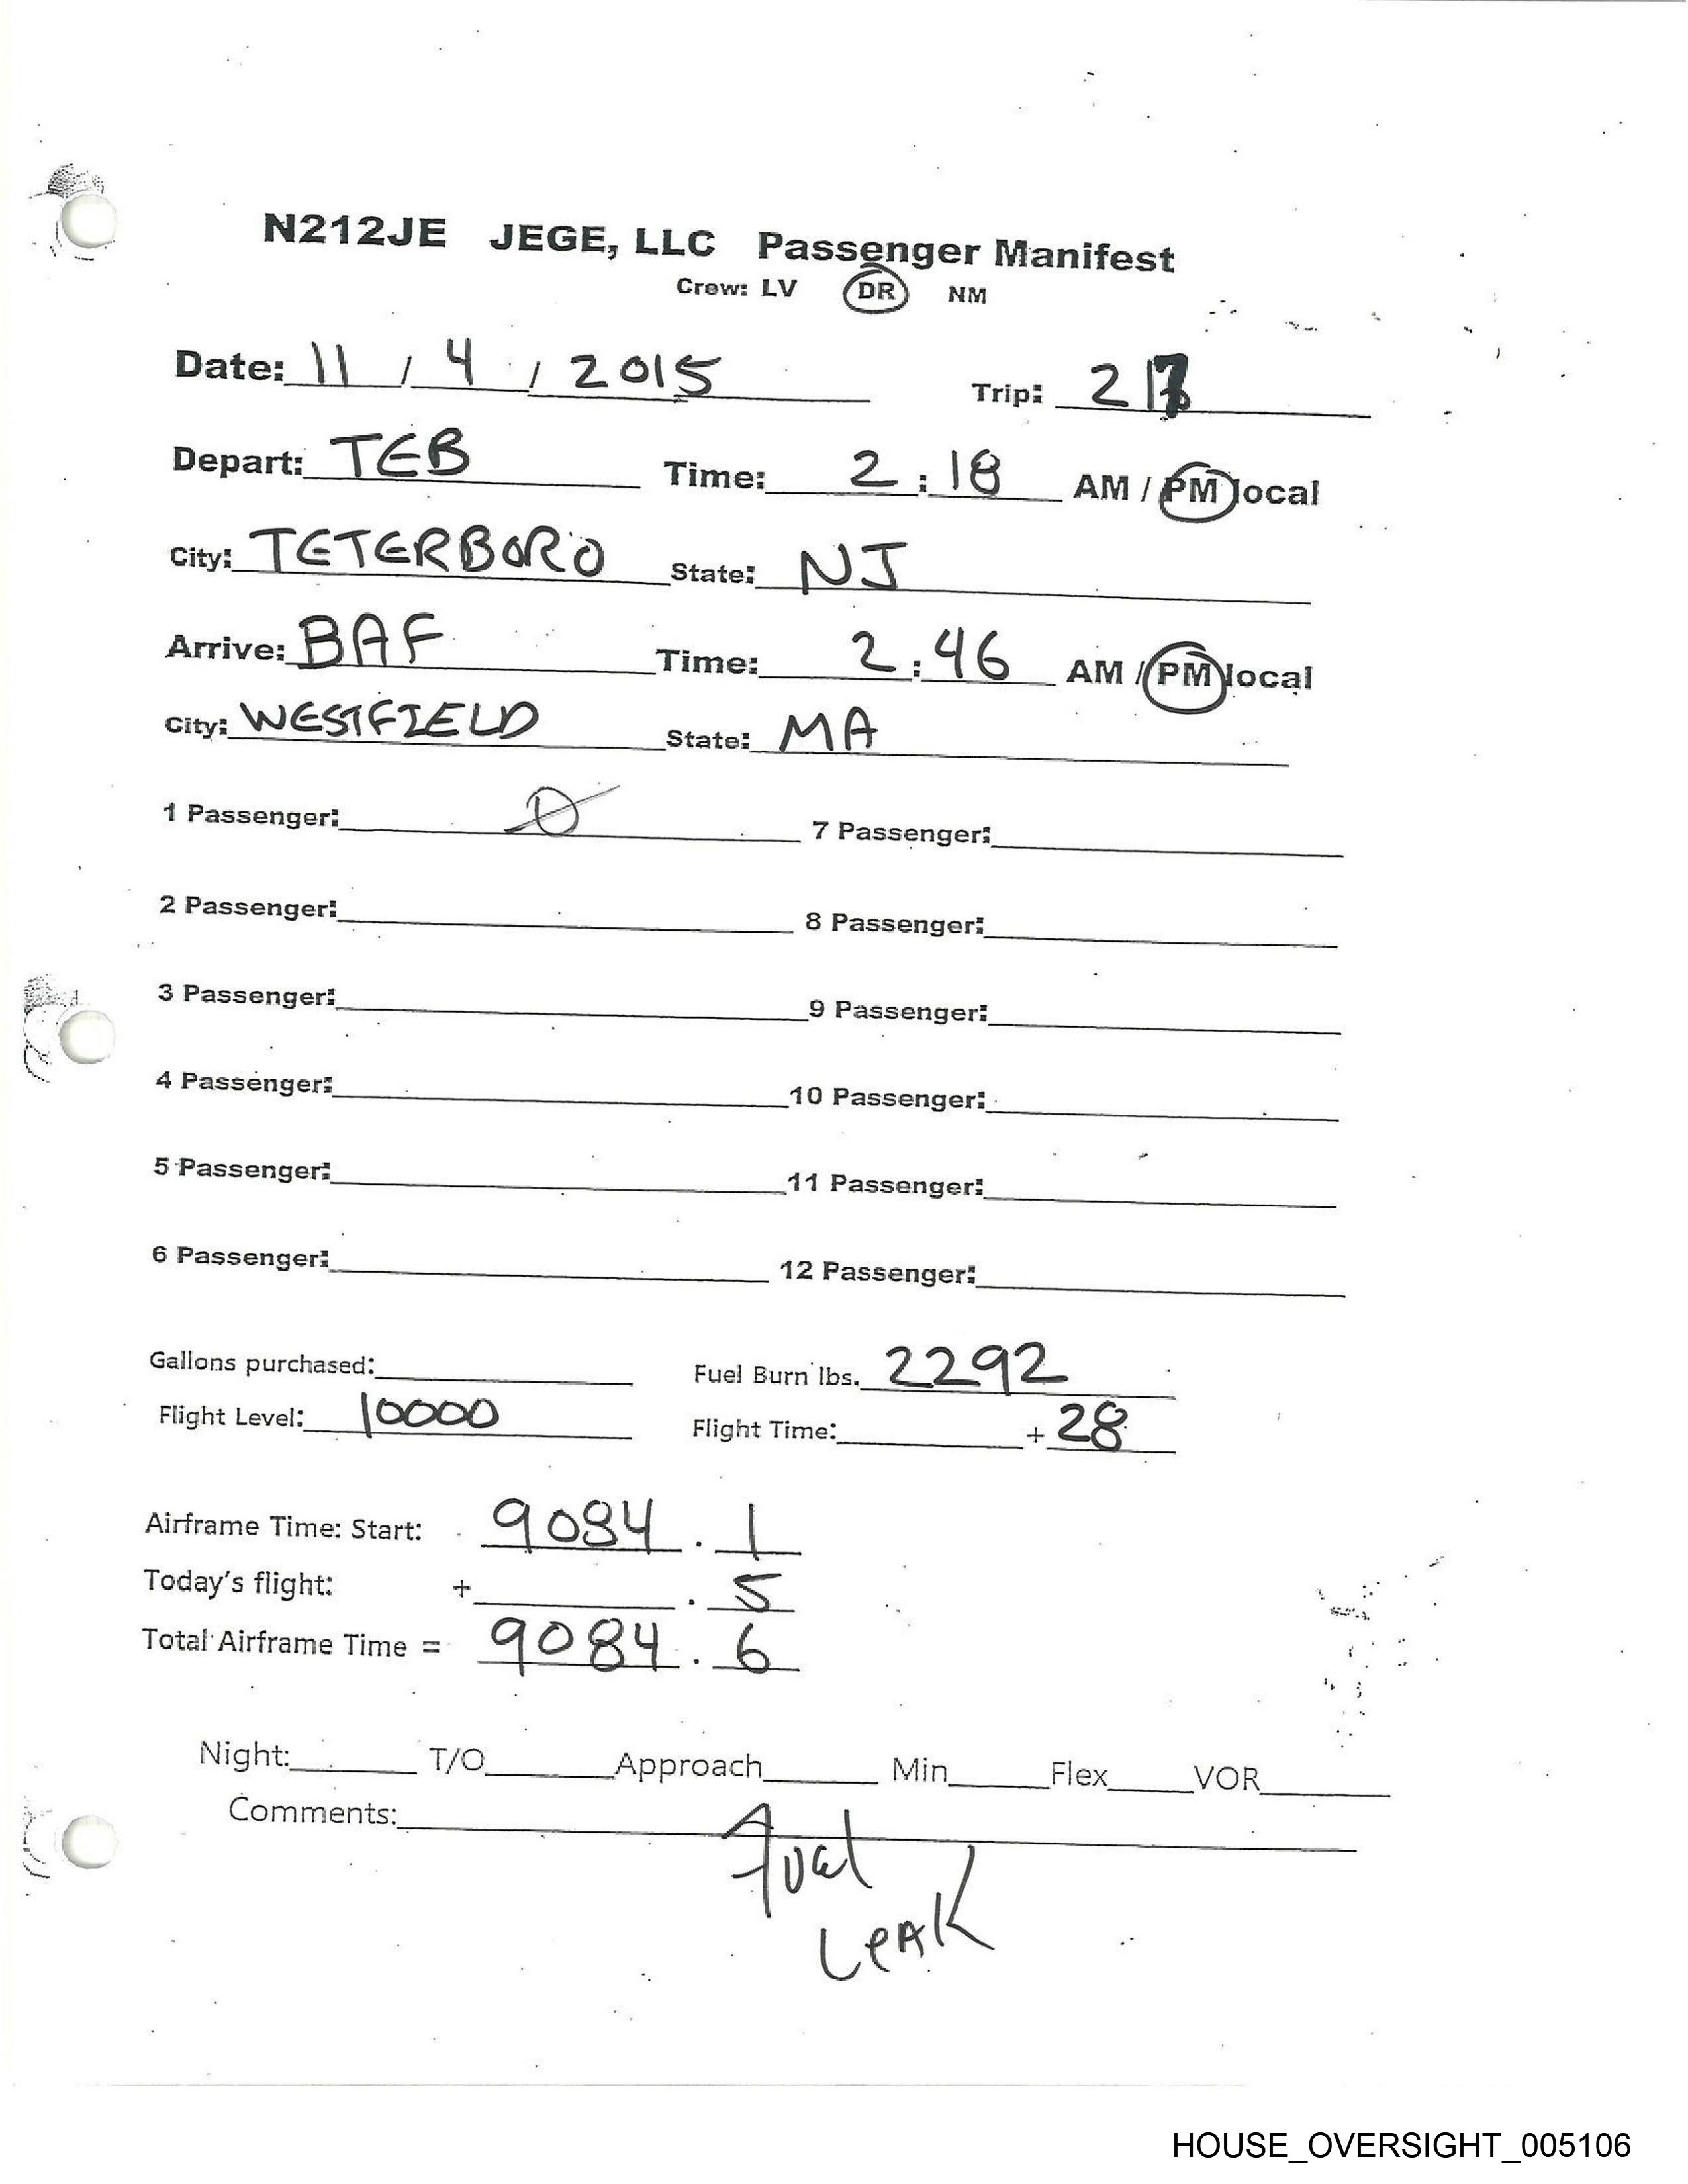 N212JE JEGE, LLC Passenger Manifest
Crew: LV DR NM
Date: 11 / 4 / 2015 Trip: 217
Depart: TEB Time: 2:18 AM / PM local
City: TETERBORO State: NJ
Arrive: BAF Time: 2:46 AM / PM local
City: WESTFIELD State: MA
1 Passenger: 0 7 Passenger:
2 Passenger: 8 Passenger:
3 Passenger: 9 Passenger:
4 Passenger: 10 Passenger:
5 Passenger: 11 Passenger:
6 Passenger: 12 Passenger:
Gallons purchased: Fuel Burn lbs. 2292
Flight Level: 10000 Flight Time: + 28
Airframe Time: Start: 9084 . 1
Today's flight: + . 5
Total Airframe Time = 9084 . 6
Night: T/O Approach Min Flex VOR
Comments:
Fuel
Leak
HOUSE_OVERSIGHT_005106